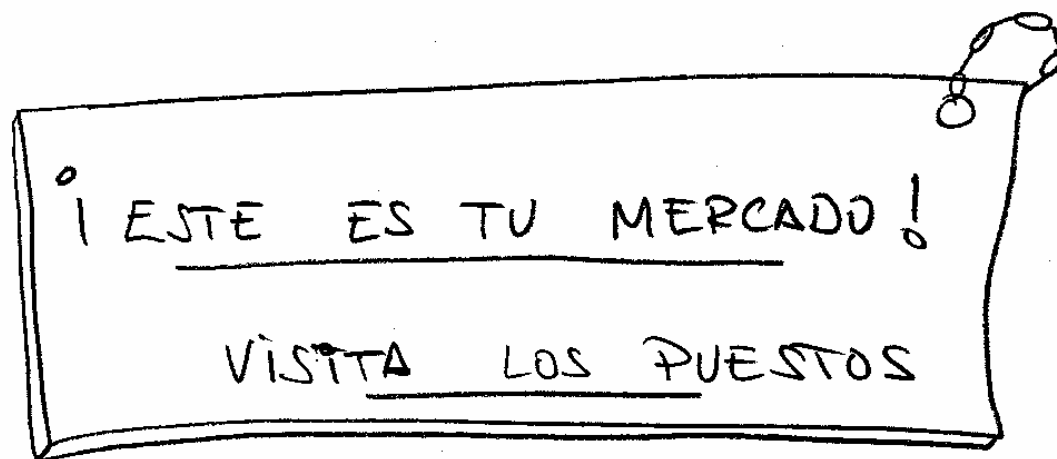 ¡ESTE ES TU MERCADO!
VISITA LOS PUESTOS